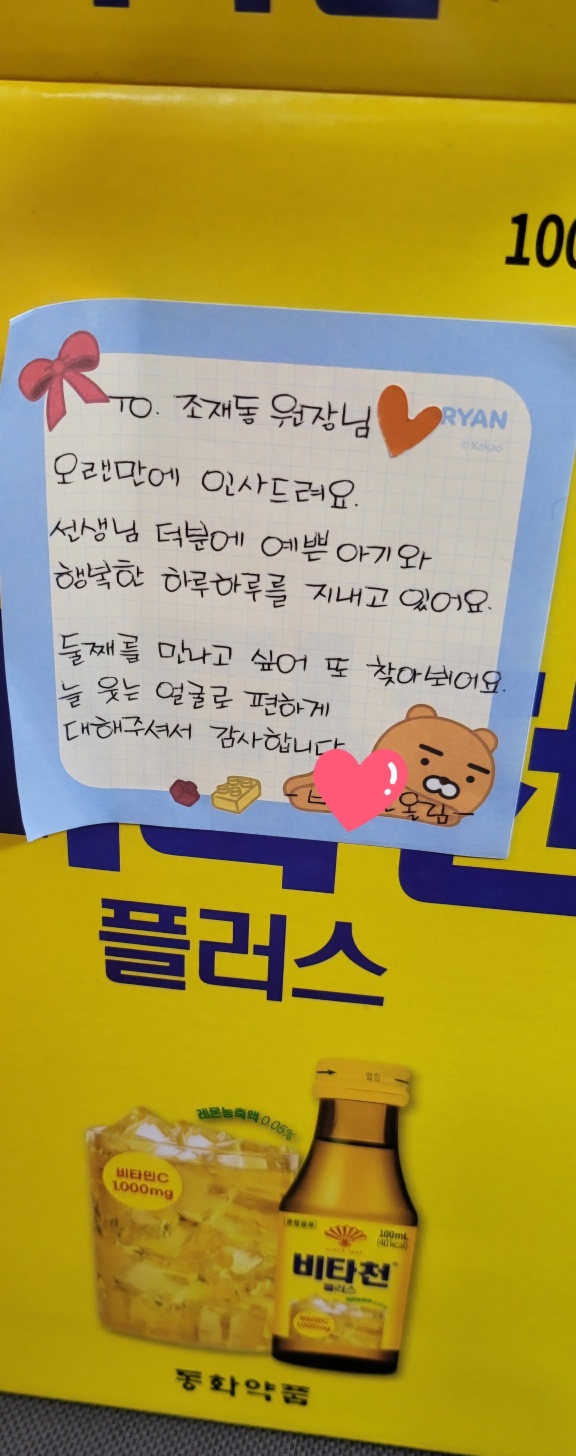 100
TO. 조재동 원장님
RYAN
© Kakao
오랜만에 인사드려요.
선생님 덕분에 예쁜 아기와
행복한 하루하루를 지내고 있어요.
둘째를 만나고 싶어 또 찾아뵈어요.
늘 웃는 얼굴로 편하게
대해주셔서 감사합니다
올림-
플러스
레몬농축액 0.05%
비타민C
1,000mg
100mL
(40kcal)
비타천
플러스
동화약품